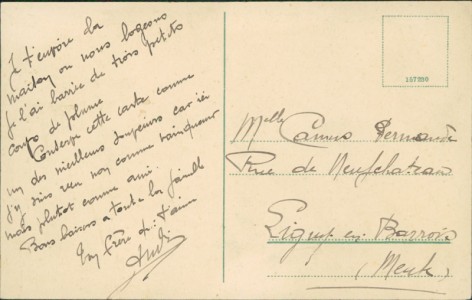 Je t'envoie la
maison où nous logeons
Je l'ai barrée de trois petits
coups de plume
Conserve cette carte comme
un des meilleurs souvenirs car ici
j'y suis non comme vainqueur
mais plutôt comme ami.
Bons baisers à toute la famille
Ton frère qui t'aime
157230
Melle Camus Fernande
Rue de Neufchateau
Ligny en Barrois
(Meuse)